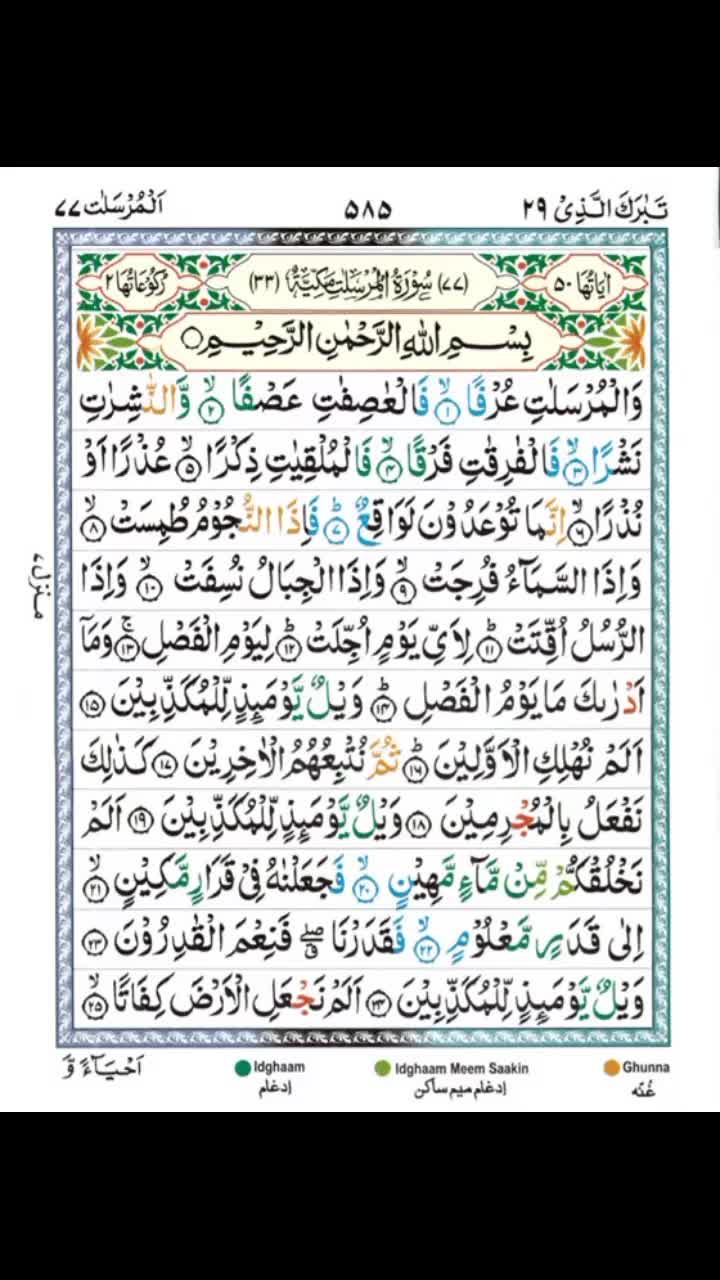 تَبٰرَكَ الَّذِیْ ٢٩
٥٨٥
اَلْمُرْسَلٰت ٧٧
اٰیَاتُهَا ٥٠
(٧٧) سُوْرَةُ الْمُرْسَلٰتِ مَكِّیَّةٌ (٣٣)
رُكُوْعَاتُهَا ٢
بِسْمِ اللّٰهِ الرَّحْمٰنِ الرَّحِیْمِ
وَالْمُرْسَلٰتِ عُرْفًا ۙ‏﴿١﴾ فَالْعٰصِفٰتِ عَصْفًا ۙ‏﴿٢﴾ وَّالنّٰشِرٰتِ
نَشْرًا ۙ‏﴿٣﴾ فَالْفٰرِقٰتِ فَرْقًا ۙ‏﴿٤﴾ فَالْمُلْقِیٰتِ ذِكْرًا ۙ‏﴿٥﴾ عُذْرًا اَوْ
نُذْرًا ۙ‏﴿٦﴾ اِنَّمَا تُوْعَدُوْنَ لَوَاقِعٌ ؕ‏﴿٧﴾ فَاِذَا النُّجُوْمُ طُمِسَتْ ۙ‏﴿٨﴾
وَاِذَا السَّمَآءُ فُرِجَتْ ۙ‏﴿٩﴾ وَاِذَا الْجِبَالُ نُسِفَتْ ۙ‏﴿١٠﴾ وَاِذَا
الرُّسُلُ اُقِّتَتْ ؕ‏﴿١١﴾ لِاَیِّ یَوْمٍ اُجِّلَتْ ؕ‏﴿١٢﴾ لِیَوْمِ الْفَصْلِ ۚ‏﴿١٣﴾ وَمَاۤ
اَدْرٰىكَ مَا یَوْمُ الْفَصْلِ ؕ‏﴿١٤﴾ وَیْلٌ یَّوْمَئِذٍ لِّلْمُكَذِّبِیْنَ ﴿١٥﴾
اَلَمْ نُهْلِكِ الْاَوَّلِیْنَ ؕ‏﴿١٦﴾ ثُمَّ نُتْبِعُهُمُ الْاٰخِرِیْنَ ﴿١٧﴾ كَذٰلِكَ
نَفْعَلُ بِالْمُجْرِمِیْنَ ﴿١٨﴾ وَیْلٌ یَّوْمَئِذٍ لِّلْمُكَذِّبِیْنَ ﴿١٩﴾ اَلَمْ
نَخْلُقْكُّمْ مِّنْ مَّآءٍ مَّهِیْنٍ ۙ‏﴿٢٠﴾ فَجَعَلْنٰهُ فِیْ قَرَارٍ مَّكِیْنٍ ۙ‏﴿٢١﴾
اِلٰى قَدَرٍ مَّعْلُوْمٍ ۙ‏﴿٢٢﴾ فَقَدَرْنَا ۖق فَنِعْمَ الْقٰدِرُوْنَ ﴿٢٣﴾
وَیْلٌ یَّوْمَئِذٍ لِّلْمُكَذِّبِیْنَ ﴿٢٤﴾ اَلَمْ نَجْعَلِ الْاَرْضَ كِفَاتًا ۙ‏﴿٢٥﴾
منزل ٧
اَحْیَآءً وَّ
Idghaam
إدغام
Idghaam Meem Saakin
إدغام میم ساكن
Ghunna
غُنّه